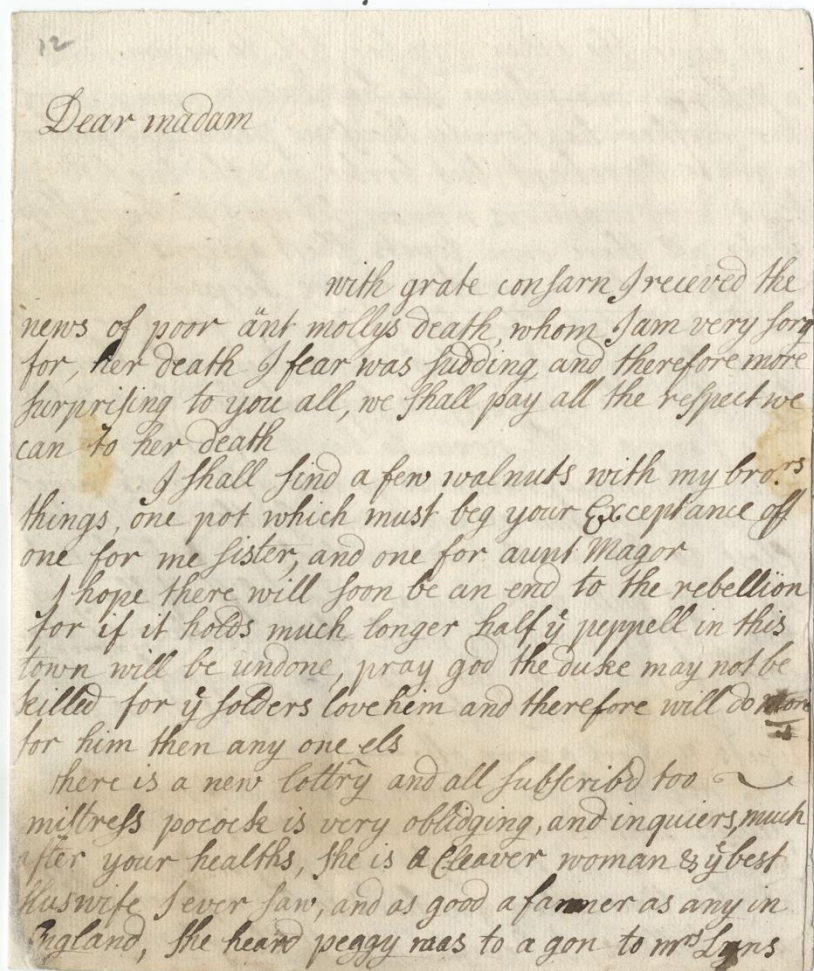 12
Dear madam
with grate consarn I receved the
news of poor änt mollys death, whom I am very sory
for, her death I fear was sudding and therefore more
surprising to you all, we shall pay all the respect we
can to her death
I shall sind a few walnuts with my bro.rs
things, one pot which must beg your Exceptance off
one for me sister, and one for aunt Magor
I hope there will soon be an end to the rebellion
for if it holds much longer half ÿ peppell in this
town will be undone, pray god the duke may not be
killed for ÿ solders love heim and therefore will do more
for him then any one els
there is a new lottry and all subscribd too
mistress pocock is very oblidging, and inquiers, much
after your healths, she is a Cleaver woman & ÿ best
Huswife I ever saw, and as good a farmer as any in
England, she heard peggy was to a gon to mrs